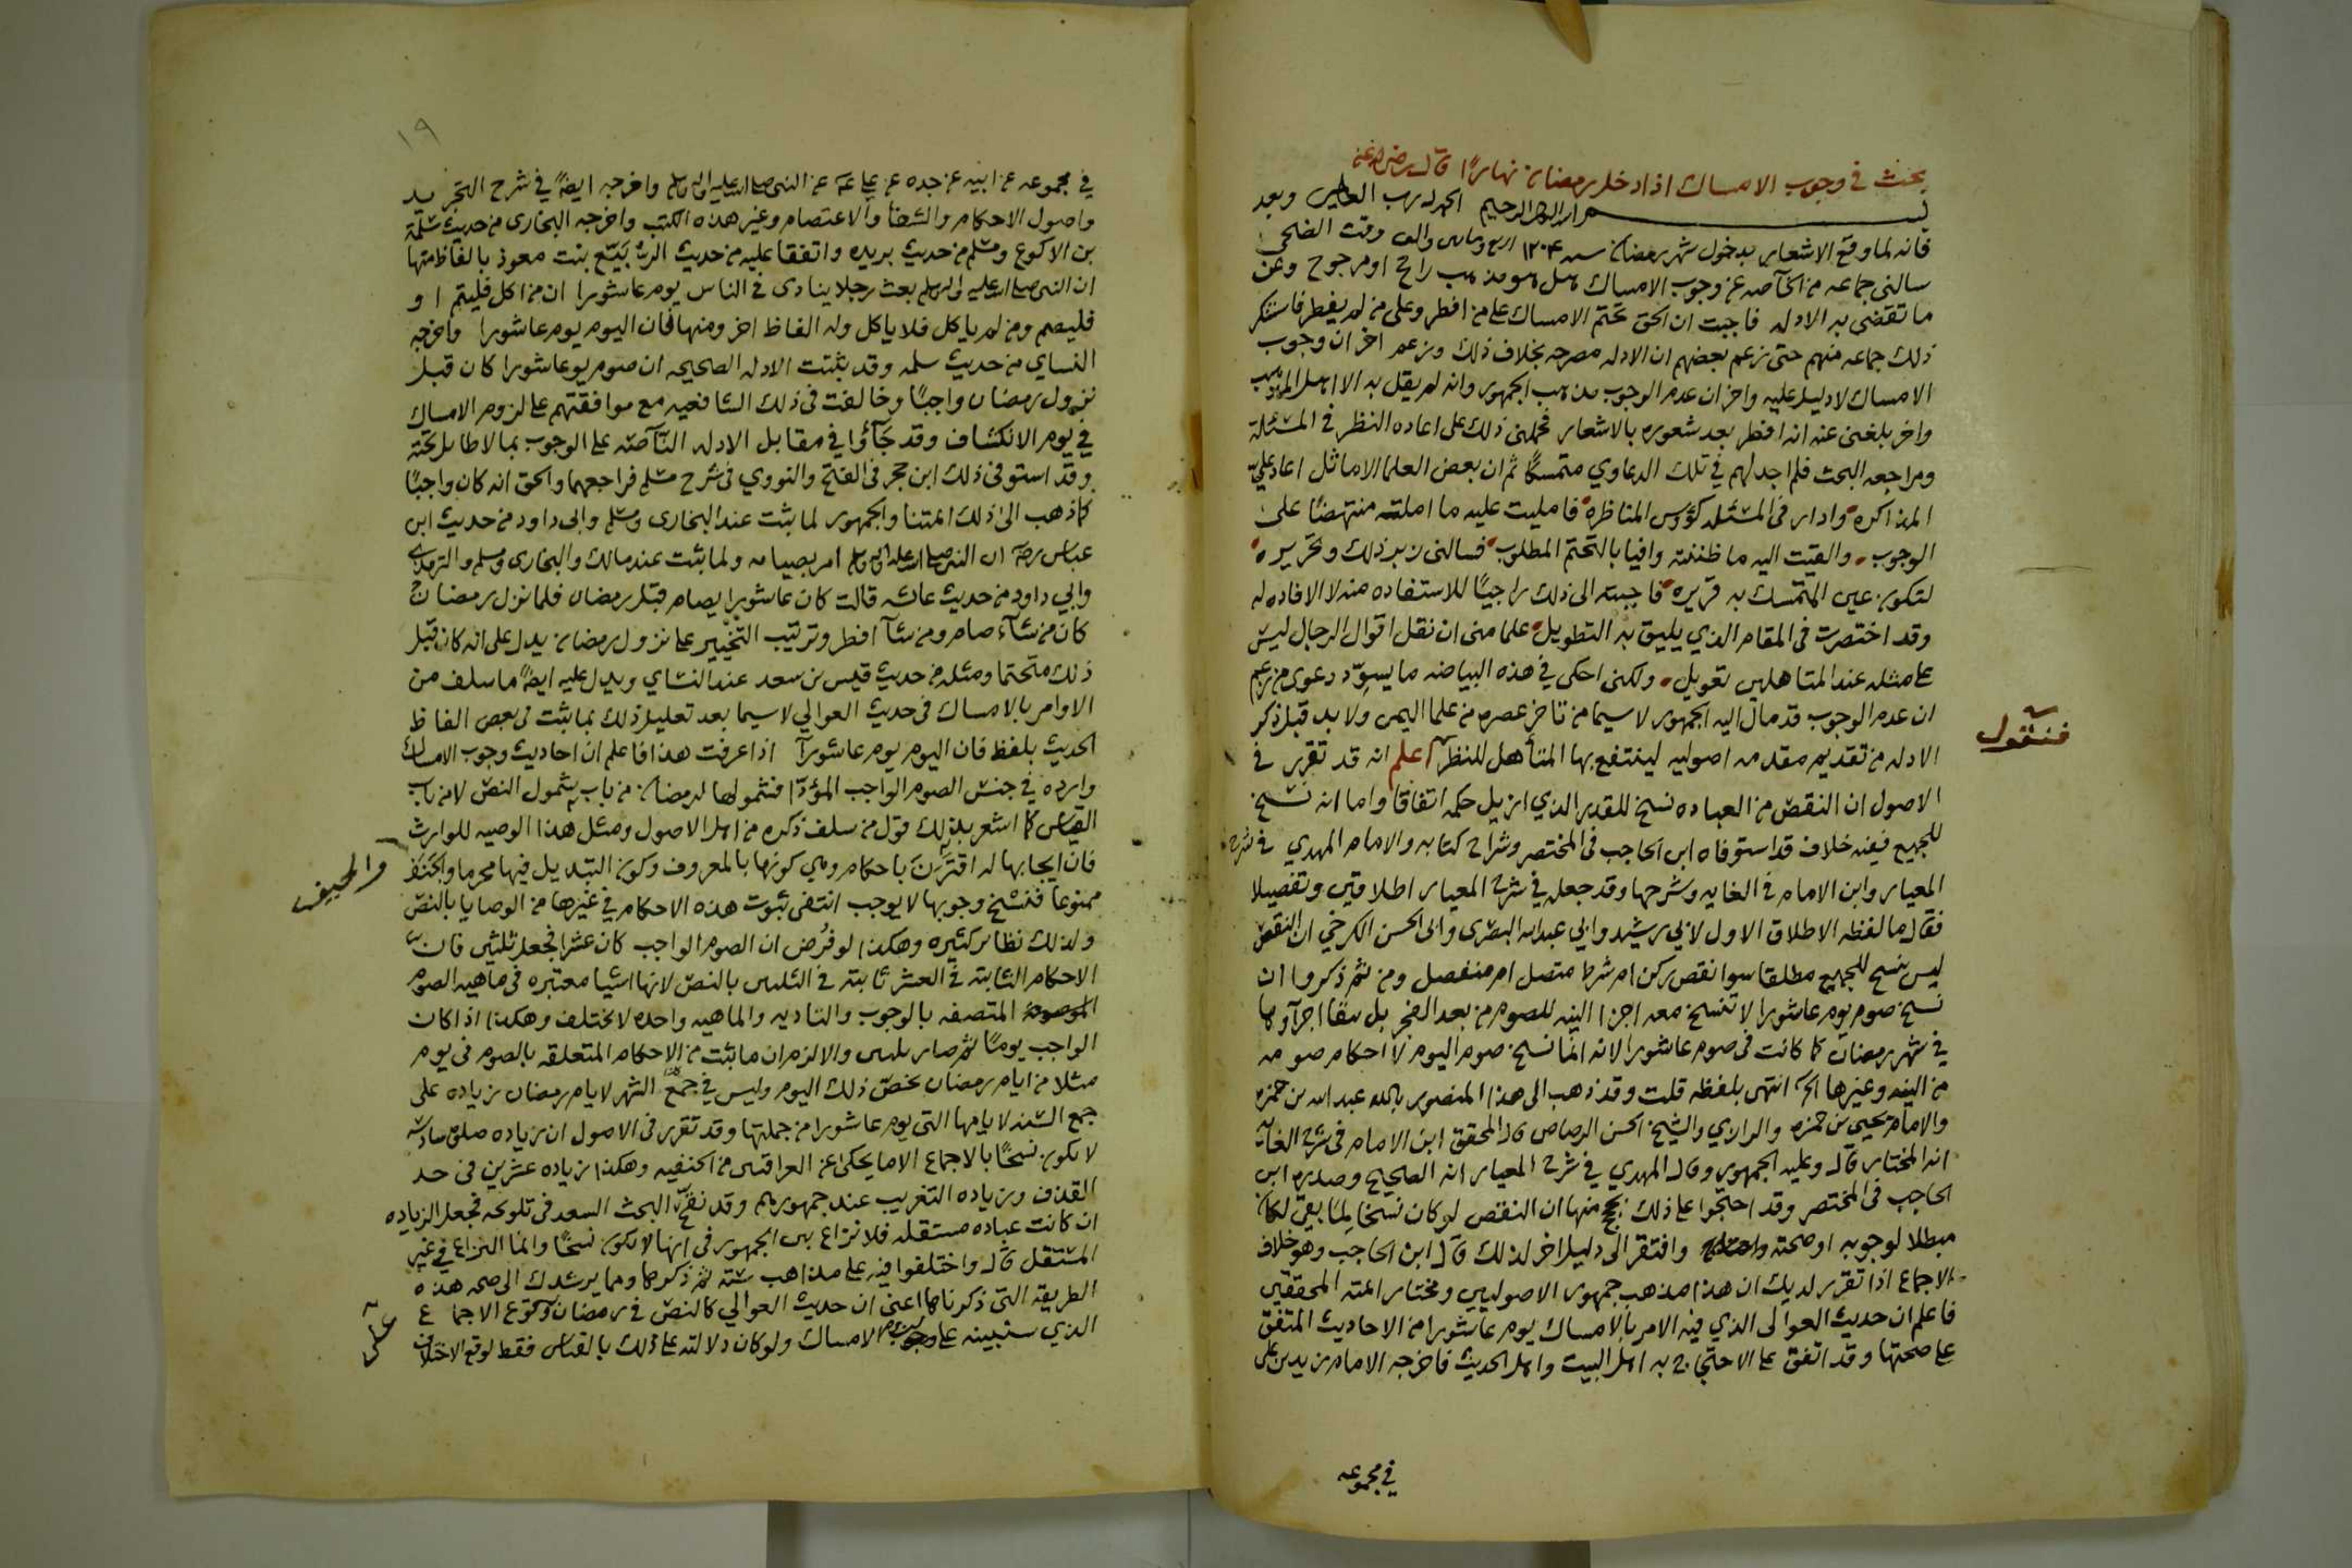 بحث في وجوب الامساك اذا دخل رمضان نهارًا قال رضي الله عنه
بسم الله الرحمن الرحيم الحمد لله رب العالمين وبعد
فانه لما وقع الاشعار بدخول شهر رمضان سنه ١٢٠٤ اربع ومايتين والف وقت الضحى
سالني جماعه من الخآصه عن وجوب الامساك هل هو مذهب راجح او مرجوح وعن
ما تقضي به الادله فاجبت ان الحق تحتم الامساك على من افطر وعلى من لم يفطر فاستنكر
ذلك جماعه منهم حتى زعم بعضهم ان الادله مصرحه بخلاف ذلك وزعم اخر ان وجوب
الامساك لا دليل عليه واخر ان عدم الوجوب مذهب الجمهور وانه لم يقل به الا اهل المذهب
واخر بلغني عنه انه افطر بعد شعوره بالاشعار فحملني ذلك على اعاده النظر في المسئلة
ومراجعه البحث فلم اجد لهم في تلك الدعاوي متمسكًا ثم ان بعض العلما الاماثل اعاد عليّ
المذاكره وادار في المسئله كؤوس المناظره فامليت عليه ما املته منتهضًا على
الوجوب والقيت اليه ما ظننته وافيا بالتحتم المطلوب فسالني زبر ذلك وتحريره
لتكون عين المتمسك به قريره فاجبته الى ذلك راجيًا للاستفاده منه لا الافاده له
وقد اختصرت في المقام الذي يليق به التطويل علما مني ان نقل اقوال الرجال ليس
على مثله عند المتاهلين تعويل ولكني احكي في هذه البياضه ما يسوّد دعوى من زعم
ان عدم الوجوب قد مال اليه الجمهور لا سيما من تاخر عصره من علما اليمن ولا بد قبل ذكر
الادله من تقديم مقدمه اصوليه لينتفع بها المتأهل للنظر اعلم انه قد تقرر في
فنقول
الاصول ان النقص من العباده نسخ للقدر الذي ازيل حكمه اتفاقا واما انه نسخ
للجميع ففيه خلاف قد استوفاه ابن الحاجب في المختصر وشراح كتابه والامام المهدي في شرح
المعيار وابن الامام في الغايه وشرحها وقد جعل في شرح المعيار اطلاقين وتفصيلا
فقال ما لفظه الاطلاق الاول لابي رشيد وابي عبدالله البصري وابي الحسن الكرخي ان النقص
ليس بنسخ للجميع مطلقا سوا نقص ركن ام شرط متصل ام منفصل ومن ثم ذكروا ان
نسخ صوم يوم عاشورا لا تنسخ معه اجزا النيه للصوم من بعد الفجر بل بقا اجزآوها
في شهر رمضان كما كانت في صوم عاشورا لانه انما نسخ صوم اليوم لا احكام صومه
من النيه وغيرها الخ انتهى بلفظه قلت وقد ذهب الى هذا المنصور بالله عبد الله بن حمزه
والامام يحيى بن حمزه والرازي والشيخ الحسن الرصاص قال المحقق ابن الامام في شرح الغايه
انه المختار قال وعليه الجمهور وقال المهدي في شرح المعيار انه الصحيح وصدره ابن
الحاجب في المختصر وقد احتجوا على ذلك بحجج منها ان النقص لو كان نسخا لما بقي لكان
مبطلا لوجوبه او صحته وافتقر الى دليل اخر لذلك قال ابن الحاجب وهو خلاف
الاجماع اذا تقرر لديك ان هذا مذهب جمهور الاصوليين ومختار ائمته المحققين
فاعلم ان حديث العوالي الذي فيه الامر بالامساك يوم عاشورا من الاحاديث المتفق
على صحتها وقد اتفق على الاحتجاج به اهل البيت واهل الحديث فاخرجه الامام زيد بن علي
في مجموعه
١٩
في مجموعه عن ابيه عن جده عن علي عن النبي صلى الله عليه واله وسلم واخرجه ايضًا في شرح التجريد
واصول الاحكام والشفا والاعتصام وغير هذه الكتب واخرجه البخاري من حديث سلمة
بن الاكوع ومسلم من حديث بريده واتفقا عليه من حديث الربَيّع بنت معوذ بالفاظ منها
ان النبي صلى الله عليه واله وسلم بعث رجلا ينادى في الناس يوم عاشورا ان من اكل فليتم او
فليصم ومن لم ياكل فلا ياكل وله الفاظ اخر ومنها فان اليوم يوم عاشورا واخرجه
النساي من حديث سلمه وقد بثت الادله الصحيحه ان صوم يو عاشورا كان قبل
نزول رمضان واجبًا وخالفت في ذلك الشافعيه مع موافقتهم على لزوم الامساك
في يوم الانكشاف وقد جَآؤا في مقابل الادله النآصه على الوجوب بما لا طايل تحته
وقد استوفى ذلك ابن حجر في الفتح والنووي في شرح مسلم فراجعهما والحق انه كان واجبًا
كما ذهب الى ذلك ائمتنا والجمهور لما بثت عند البخاري ومسلم وابي داود من حديث ابن
عباس رضه ان النبي صلى الله عليه واله وسلم امر بصيامه ولما بثت عند مالك والبخاري ومسلم والترمذي
وابي داود من حديث عائشه قالت كان عاشورا يصام قبل رمضان فلما نزل رمضان
كان من شآء صام ومن شآ افطر وترتيب التخيير على نزول رمضان يدل على انه كان قبل
ذلك متحتما ومثله من حديث قيس بن سعد عند النساي ويدل عليه ايضًا ما سلف من
الاوامر بالامساك في حديث العوالي لا سيما بعد تعليل ذلك بما بثت في بعض الفاظ
الحديث بلفظ فان اليوم يوم عاشورآ اذا عرفت هذا فاعلم ان احاديث وجوب الامساك
وارده في جنس الصوم الواجب المؤدّا فشمولها لرمضان من باب شمول النص لا من باب
القياس كما اشعر بذلك قول من سلف ذكره من اهل الاصول ومثل هذا الوصيه للوارث
فان ايجابها له اقترَن باحكام وهي كونها بالمعروف وكون التبديل فيها محرما والجنف
والحيف
ممنوعا فنسخ وجوبها لا يوجب انتفى ثبوت هذه الاحكام في غيرها من الوصايا بالنص
ولذلك نظاير كثيره وهكذا لو فُرض ان الصوم الواجب كان عشرا فجعل ثلثين فان
الاحكام الثابته في العشر ثابته في الثلثين بالنص لانها اشيا معتبره في ماهيه الصوم
المتصفه بالوجوب والتاديه والماهيه واحده لا تختلف وهكذا اذا كان
الواجب يومًا ثم صار ثلثين والا لزم ان ما بثت من الاحكام المتعلقه بالصوم في يوم
مثلا من ايام رمضان تخصّ ذلك اليوم وليس في جمع الشهر لايام رمضان زياده على
جمع السنه لايامها التي يوم عاشورا من جملتها وقد تقرر في الاصول ان زياده صلوة سادسه
لا تكون نسخًا بالاجماع الا ما يحكى عن العراقيين من الحنفيه وهكذا زياده عشرين في حد
القذف وزياده التغريب عند جمهورهم وقد نقّح البحث السعد في تلويحه فجعل الزياده
ان كانت عباده مستقله فلا نزاع بين الجمهور في انها لا تكون نسخًا وانما النزاع في غير
المستقل قال واختلفوا فيه على مذاهب ستة ثم ذكرها ومما يرشدك الى صحه هذه
الطريقه التي ذكرناها اعني ان حديث العوالي كالنص في رمضان وقوع الاجماع
على
الذي سنبينه على وجوب الامساك ولو كان دلالته على ذلك بالقياس فقط لوقع الاختلاف